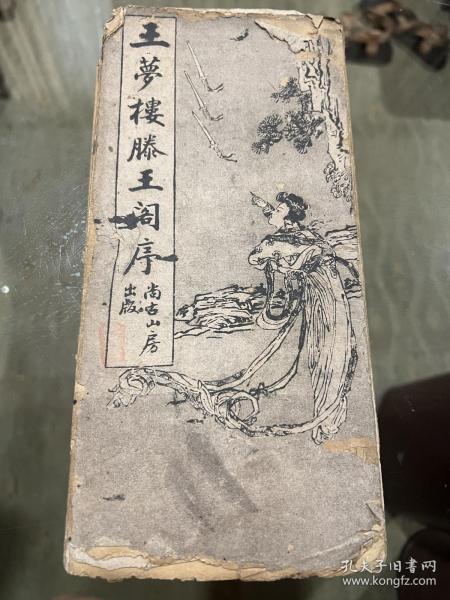 王夢樓滕王阁序
尚古山房
出版
孔夫子旧书网
www.kongfz.com